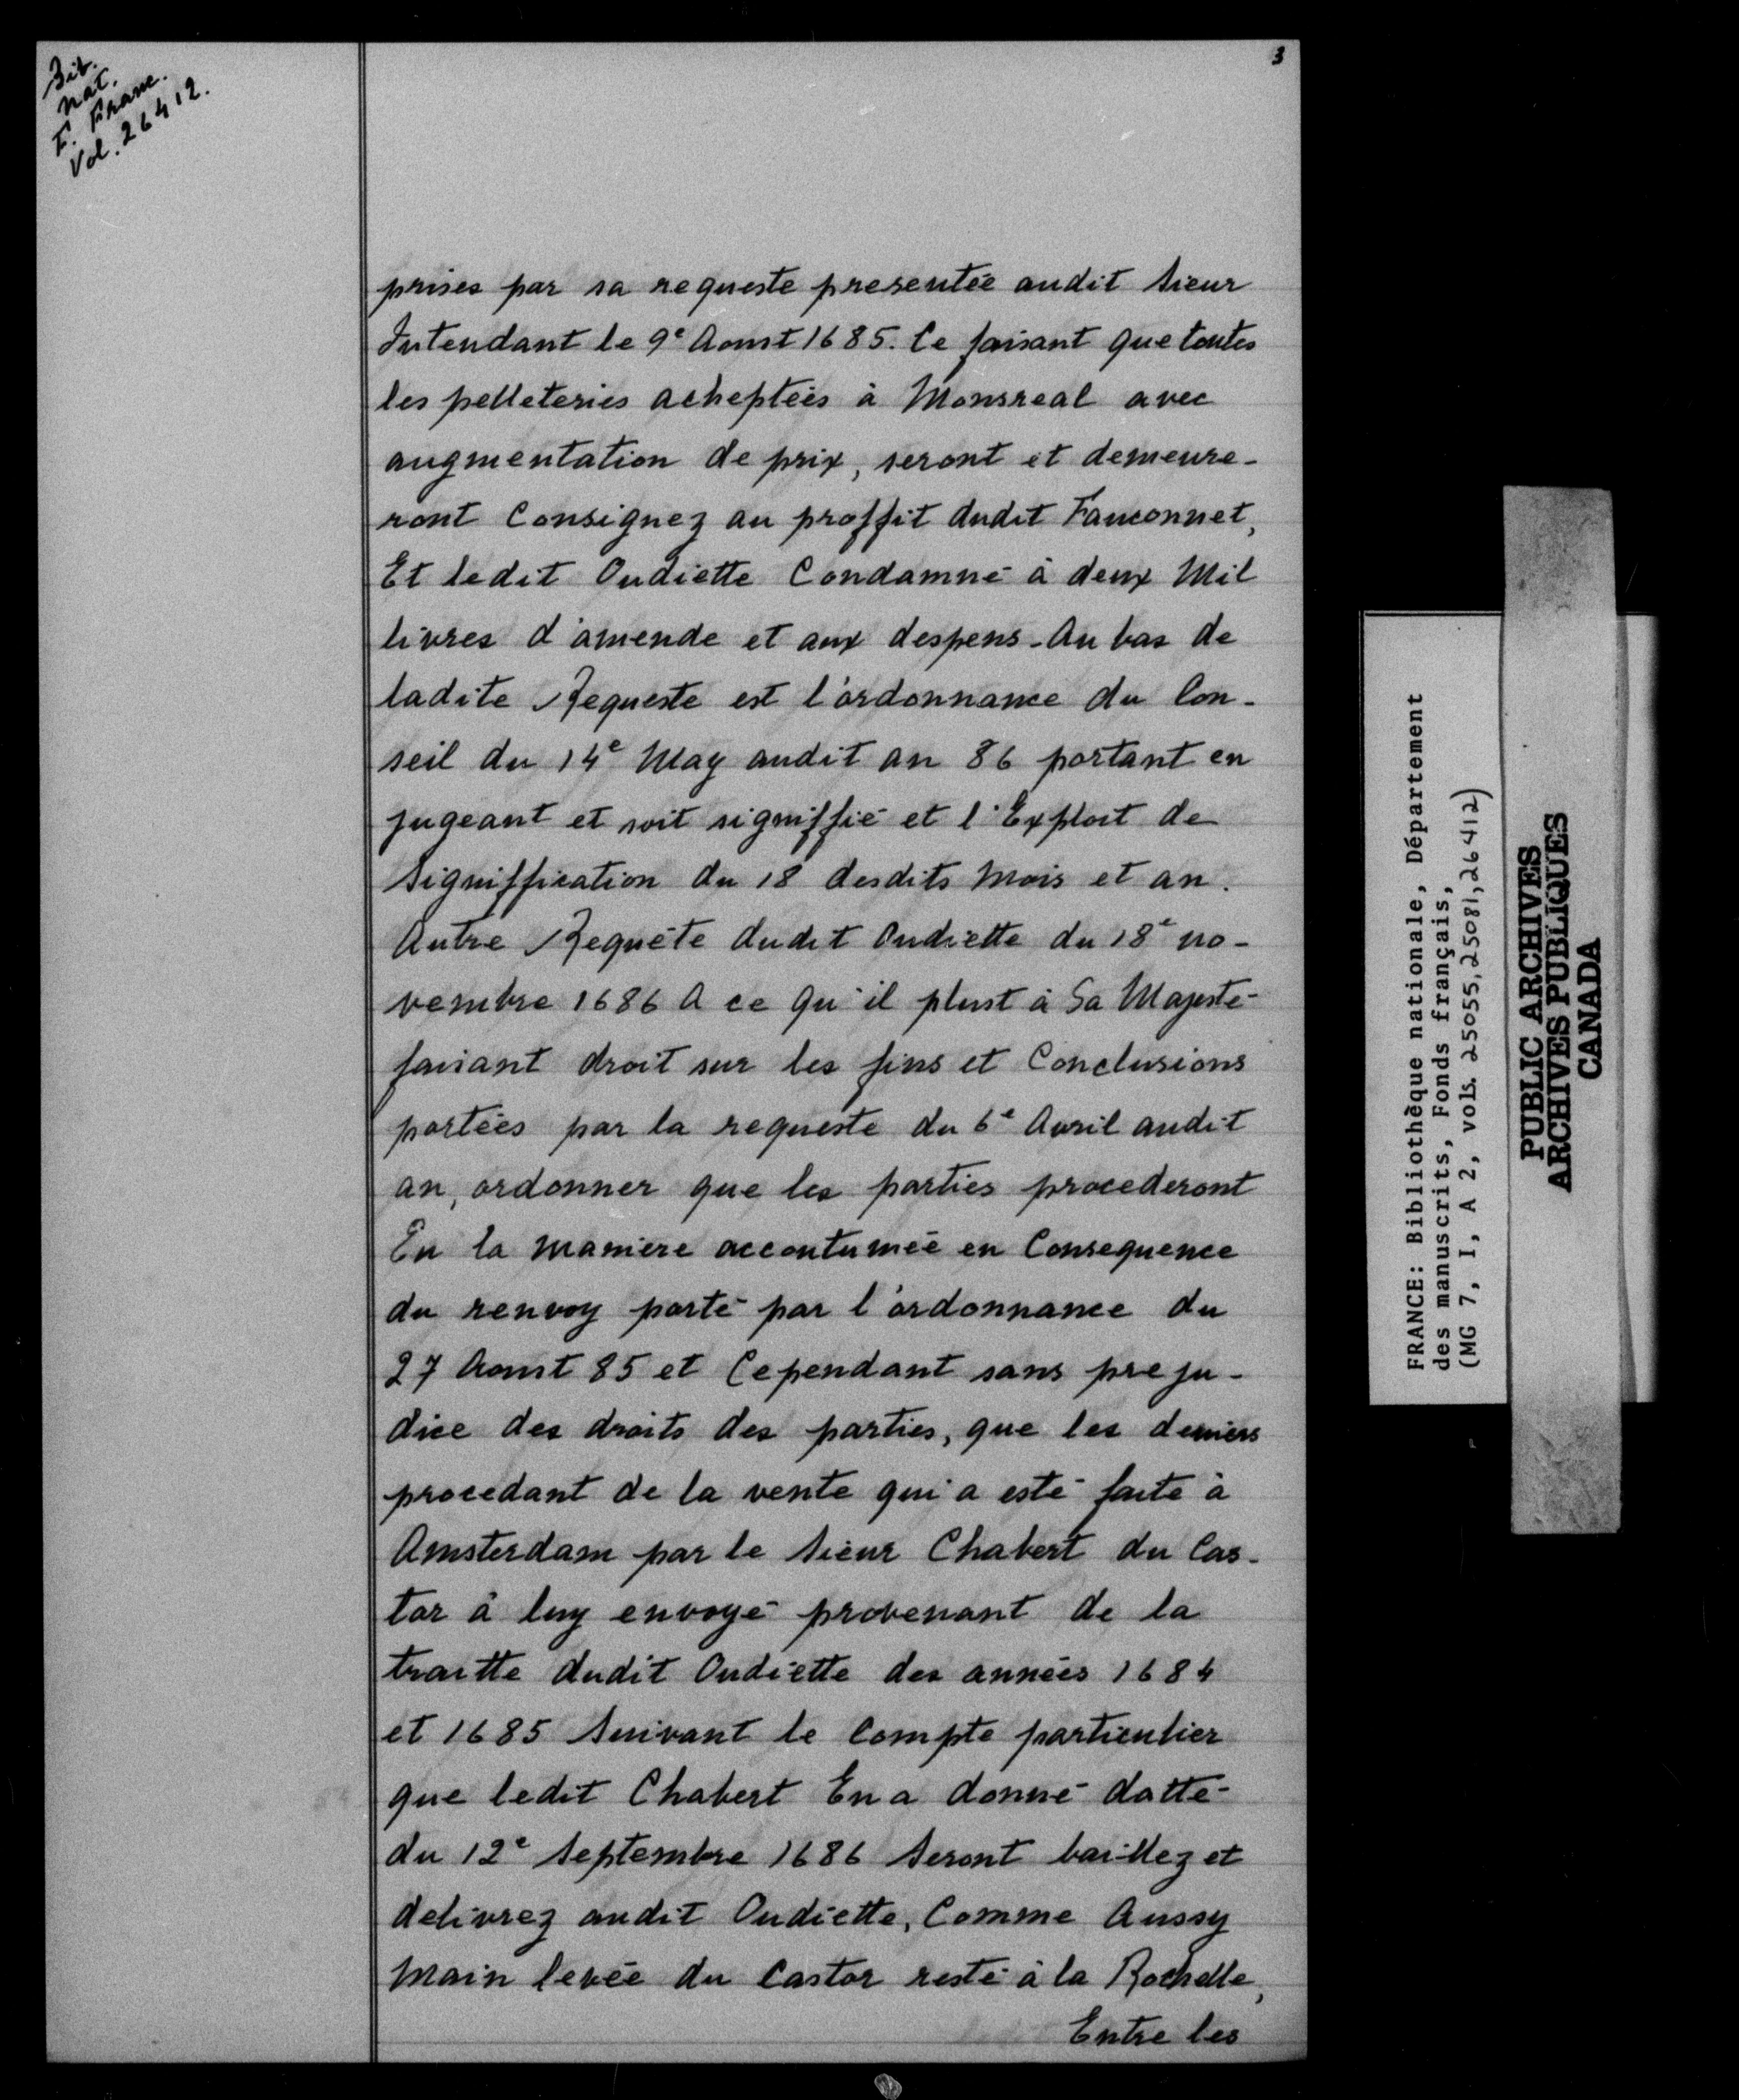 Bib.
Nat.
F. Franc.
Vol. 26412.
3
prises par sa requeste presentée audit Sieur
Intendant le 9e Aoust 1685. Ce faisant que toutes
les pelleteries acheptées à Monsreal avec
augmentation de prix, seront et demeure-
ront Consignez au proffit dudit Fauconnet,
Et ledit Oudiette Condamné à deux Mil
livres d'amende et aux despens - Au bas de
ladite Requeste est l'ordonnance du Con-
seil du 14e May audit an 86 portant en
jugeant et soit signiffié et l'Exploit de
Signiffication du 18 desdits Mois et an.
Autre Requête dudit Oudiette du 18e no-
vembre 1686 A ce qu'il plust à Sa Majesté
faisant droit sur les fins et Conclusions
portées par la requeste du 6e Avril audit
an, ordonner que les parties procederont
En la maniere accoutumée en Consequence
du renvoy porté par l'ordonnance du
27 Aoust 85 et Cependant sans preju-
dice des droits des parties, que les deniers
procedant de la vente qui a esté faite à
Amsterdam par le Sieur Chabert du Cas-
tor à luy envoyé provenant de la
traitte dudit Oudiette des années 1684
et 1685 Suivant le Compte particulier
que ledit Chabert En a donné datté
du 12e Septembre 1686 Seront baillez et
delivrez audit Oudiette, Comme Aussy
Main levée du Castor resté à la Rochelle,
Entre les
FRANCE: Bibliothèque nationale, Département
des manuscrits, Fonds français,
(MG 7, I, A 2, vols. 25055, 25081, 26412)
PUBLIC ARCHIVES
ARCHIVES PUBLIQUES
CANADA